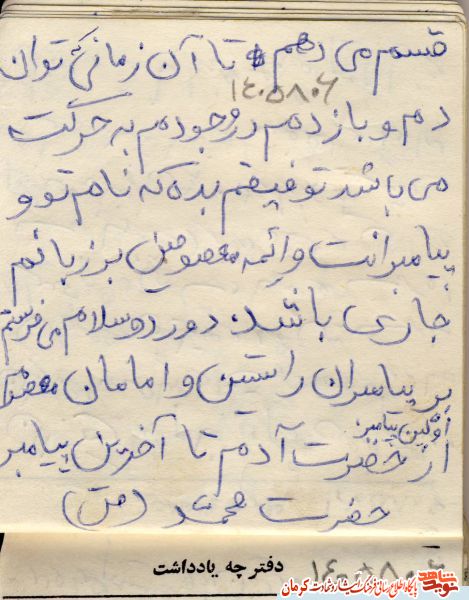 قسم می دهم تا آن زمانیکه توان
۱۴۰۵۸۰۶
دم و بازدم در وجودم به حرکت
می باشد توفیقم بده که نام تو و
پیامبرانت و ائمه معصومین بر زبانم
جاری باشد. دورد و سلام می فرستم
بر پیامبران راستین و امامان معصوم
اولین پیامبر
از حضرت آدم تا آخرین پیامبر
حضرت محمد (ص)
دفترچه یادداشت
۱۴۰۵۸۰۶
نوید شاهد
پایگاه اطلاع رسانی فرهنگ ایثار و شهادت کرمان